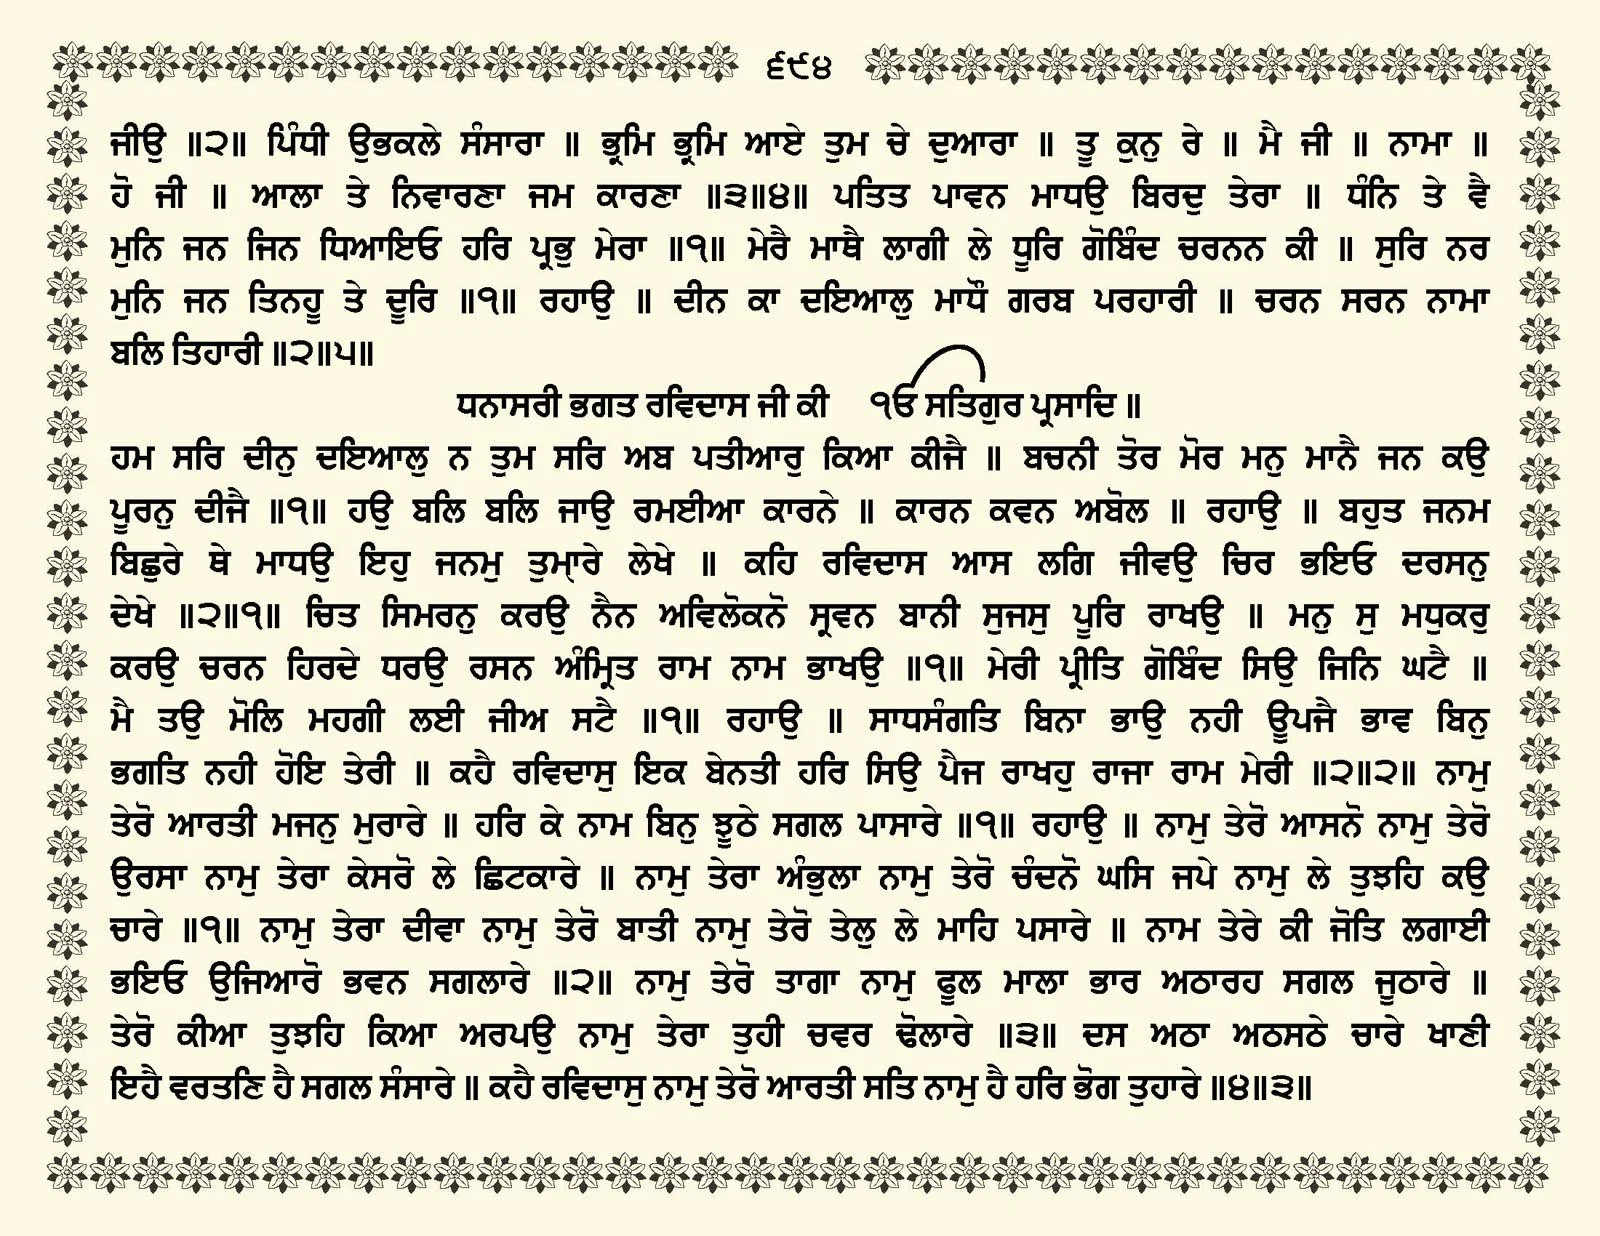 ੬੯੪
ਜੀਉ ॥੨॥ ਪਿੰਧੀ ਉਭਕਲੇ ਸੰਸਾਰਾ ॥ ਭ੍ਰਮਿ ਭ੍ਰਮਿ ਆਏ ਤੁਮ ਚੇ ਦੁਆਰਾ ॥ ਤੂ ਕੁਨੁ ਰੇ ॥ ਮੈ ਜੀ ॥ ਨਾਮਾ ॥
ਹੋ ਜੀ ॥ ਆਲਾ ਤੇ ਨਿਵਾਰਣਾ ਜਮ ਕਾਰਣਾ ॥੩॥੪॥ ਪਤਿਤ ਪਾਵਨ ਮਾਧਉ ਬਿਰਦੁ ਤੇਰਾ ॥ ਧੰਨਿ ਤੇ ਵੈ
ਮੁਨਿ ਜਨ ਜਿਨ ਧਿਆਇਓ ਹਰਿ ਪ੍ਰਭੁ ਮੇਰਾ ॥੧॥ ਮੇਰੈ ਮਾਥੈ ਲਾਗੀ ਲੇ ਧੂਰਿ ਗੋਬਿੰਦ ਚਰਨਨ ਕੀ ॥ ਸੁਰਿ ਨਰ
ਮੁਨਿ ਜਨ ਤਿਨਹੂ ਤੇ ਦੂਰਿ ॥੧॥ ਰਹਾਉ ॥ ਦੀਨ ਕਾ ਦਇਆਲੁ ਮਾਧੌ ਗਰਬ ਪਰਹਾਰੀ ॥ ਚਰਨ ਸਰਨ ਨਾਮਾ
ਬਲਿ ਤਿਹਾਰੀ ॥੨॥੫॥
ਧਨਾਸਰੀ ਭਗਤ ਰਵਿਦਾਸ ਜੀ ਕੀ ੴ ਸਤਿਗੁਰ ਪ੍ਰਸਾਦਿ ॥
ਹਮ ਸਰਿ ਦੀਨੁ ਦਇਆਲੁ ਨ ਤੁਮ ਸਰਿ ਅਬ ਪਤੀਆਰੁ ਕਿਆ ਕੀਜੈ ॥ ਬਚਨੀ ਤੋਰ ਮੋਰ ਮਨੁ ਮਾਨੈ ਜਨ ਕਉ
ਪੂਰਨੁ ਦੀਜੈ ॥੧॥ ਹਉ ਬਲਿ ਬਲਿ ਜਾਉ ਰਮਈਆ ਕਾਰਨੇ ॥ ਕਾਰਨ ਕਵਨ ਅਬੋਲ ॥ ਰਹਾਉ ॥ ਬਹੁਤ ਜਨਮ
ਬਿਛੁਰੇ ਥੇ ਮਾਧਉ ਇਹੁ ਜਨਮੁ ਤੁਮ੍ਹਾਰੇ ਲੇਖੇ ॥ ਕਹਿ ਰਵਿਦਾਸ ਆਸ ਲਗਿ ਜੀਵਉ ਚਿਰ ਭਇਓ ਦਰਸਨੁ
ਦੇਖੇ ॥੨॥੧॥ ਚਿਤ ਸਿਮਰਨੁ ਕਰਉ ਨੈਨ ਅਵਿਲੋਕਨੋ ਸ੍ਰਵਨ ਬਾਨੀ ਸੁਜਸੁ ਪੂਰਿ ਰਾਖਉ ॥ ਮਨੁ ਸੁ ਮਧੁਕਰੁ
ਕਰਉ ਚਰਨ ਹਿਰਦੇ ਧਰਉ ਰਸਨ ਅੰਮ੍ਰਿਤ ਰਾਮ ਨਾਮ ਭਾਖਉ ॥੧॥ ਮੇਰੀ ਪ੍ਰੀਤਿ ਗੋਬਿੰਦ ਸਿਉ ਜਿਨਿ ਘਟੈ ॥
ਮੈ ਤਉ ਮੋਲਿ ਮਹਗੀ ਲਈ ਜੀਅ ਸਟੈ ॥੧॥ ਰਹਾਉ ॥ ਸਾਧਸੰਗਤਿ ਬਿਨਾ ਭਾਉ ਨਹੀ ਊਪਜੈ ਭਾਵ ਬਿਨੁ
ਭਗਤਿ ਨਹੀ ਹੋਇ ਤੇਰੀ ॥ ਕਹੈ ਰਵਿਦਾਸੁ ਇਕ ਬੇਨਤੀ ਹਰਿ ਸਿਉ ਪੈਜ ਰਾਖਹੁ ਰਾਜਾ ਰਾਮ ਮੇਰੀ ॥੨॥੨॥ ਨਾਮੁ
ਤੇਰੋ ਆਰਤੀ ਮਜਨੁ ਮੁਰਾਰੇ ॥ ਹਰਿ ਕੇ ਨਾਮ ਬਿਨੁ ਝੂਠੇ ਸਗਲ ਪਾਸਾਰੇ ॥੧॥ ਰਹਾਉ ॥ ਨਾਮੁ ਤੇਰੋ ਆਸਨੋ ਨਾਮੁ ਤੇਰੋ
ਉਰਸਾ ਨਾਮੁ ਤੇਰਾ ਕੇਸਰੋ ਲੇ ਛਿਟਕਾਰੇ ॥ ਨਾਮੁ ਤੇਰਾ ਅੰਭੁਲਾ ਨਾਮੁ ਤੇਰੋ ਚੰਦਨੋ ਘਸਿ ਜਪੇ ਨਾਮੁ ਲੇ ਤੁਝਹਿ ਕਉ
ਚਾਰੇ ॥੧॥ ਨਾਮੁ ਤੇਰਾ ਦੀਵਾ ਨਾਮੁ ਤੇਰੋ ਬਾਤੀ ਨਾਮੁ ਤੇਰੋ ਤੇਲੁ ਲੇ ਮਾਹਿ ਪਸਾਰੇ ॥ ਨਾਮ ਤੇਰੇ ਕੀ ਜੋਤਿ ਲਗਾਈ
ਭਇਓ ਉਜਿਆਰੋ ਭਵਨ ਸਗਲਾਰੇ ॥੨॥ ਨਾਮੁ ਤੇਰੋ ਤਾਗਾ ਨਾਮੁ ਫੂਲ ਮਾਲਾ ਭਾਰ ਅਠਾਰਹ ਸਗਲ ਜੂਠਾਰੇ ॥
ਤੇਰੋ ਕੀਆ ਤੁਝਹਿ ਕਿਆ ਅਰਪਉ ਨਾਮੁ ਤੇਰਾ ਤੁਹੀ ਚਵਰ ਢੋਲਾਰੇ ॥੩॥ ਦਸ ਅਠਾ ਅਠਸਠੇ ਚਾਰੇ ਖਾਣੀ
ਇਹੈ ਵਰਤਣਿ ਹੈ ਸਗਲ ਸੰਸਾਰੇ ॥ ਕਹੈ ਰਵਿਦਾਸੁ ਨਾਮੁ ਤੇਰੋ ਆਰਤੀ ਸਤਿ ਨਾਮੁ ਹੈ ਹਰਿ ਭੋਗ ਤੁਹਾਰੇ ॥੪॥੩॥